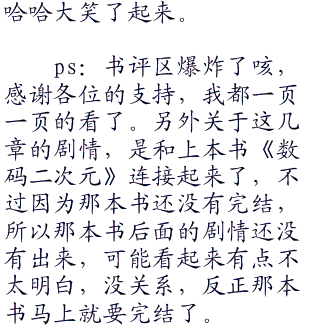 哈哈大笑了起来。
ps：书评区爆炸了咳，
感谢各位的支持，我都一页
一页的看了。另外关于这几
章的剧情，是和上本书《数
码二次元》连接起来了，不
过因为那本书还没有完结，
所以那本书后面的剧情还没
有出来，可能看起来有点不
太明白，没关系，反正那本
书马上就要完结了。